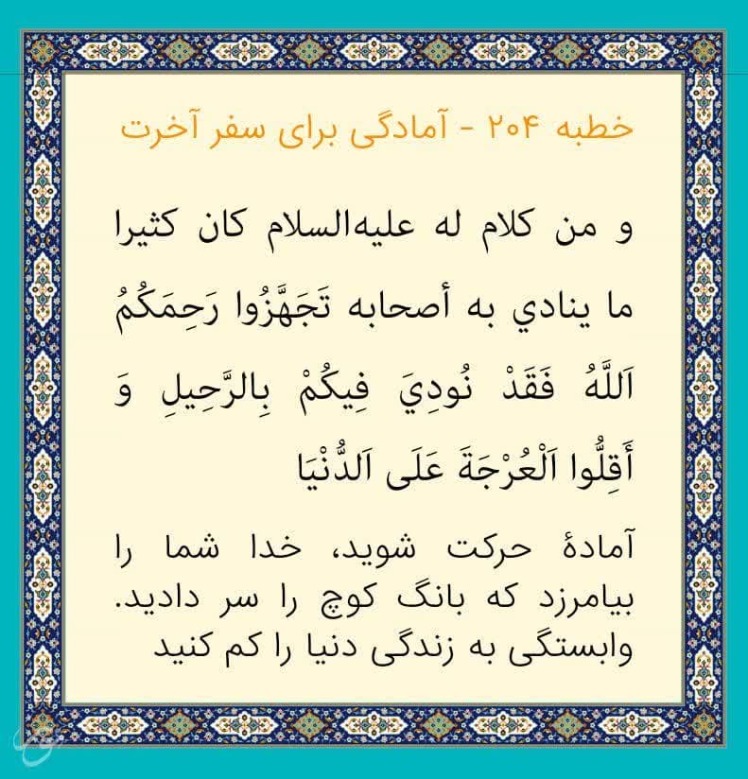 خطبه ۲۰۴ - آمادگی برای سفر آخرت
و من کلام له علیه‌السلام کان کثیرا
ما ینادي به أصحابه تَجَهَّزُوا رَحِمَکُمُ
اَللَّهُ فَقَدْ نُودِيَ فِیکُمْ بِالرَّحِیلِ وَ
أَقِلُّوا اَلْعُرْجَةَ عَلَی اَلدُّنْیَا
آمادهٔ حرکت شوید، خدا شما را
بیامرزد که بانگ کوچ را سر دادید.
وابستگی به زندگی دنیا را کم کنید